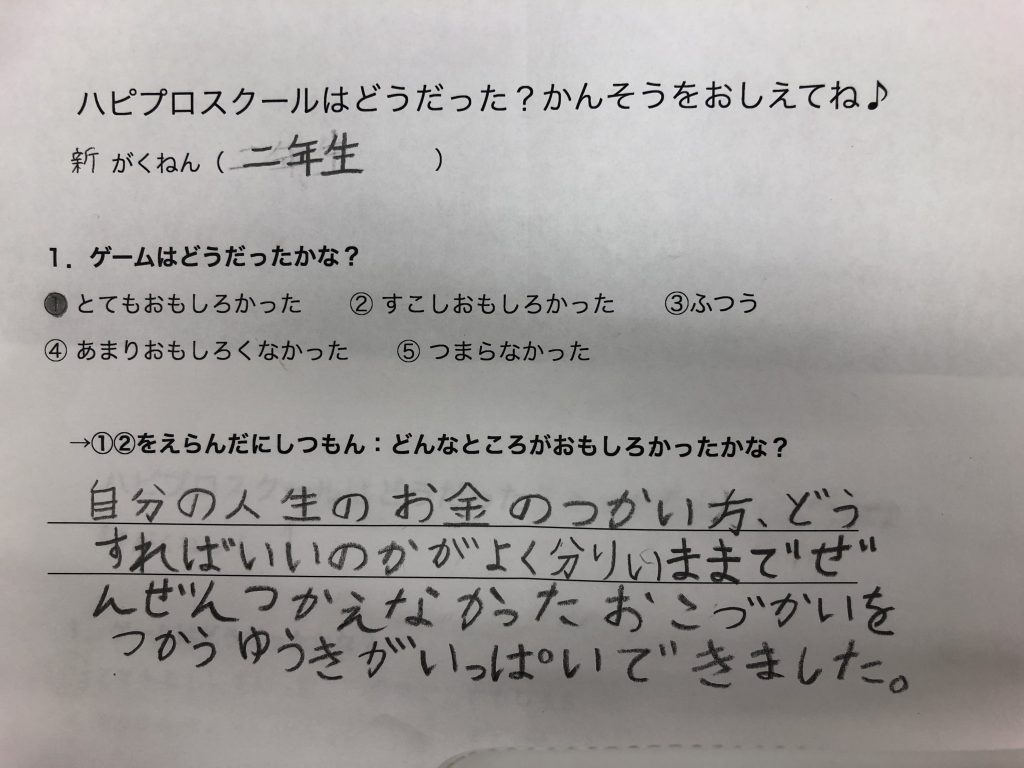 ハピプロスクールはどうだった？かんそうをおしえてね♪
新 がくねん（ 二年生 ）
１．ゲームはどうだったかな？
① とてもおもしろかった ② すこしおもしろかった ③ふつう
④ あまりおもしろくなかった ⑤ つまらなかった
→①②をえらんだにしつもん：どんなところがおもしろかったかな？
自分の人生のお金のつかい方、どう
すればいいのかがよく分りいままでぜ
んぜんつかえなかったおこづかいを
つかうゆうきがいっぱいできました。